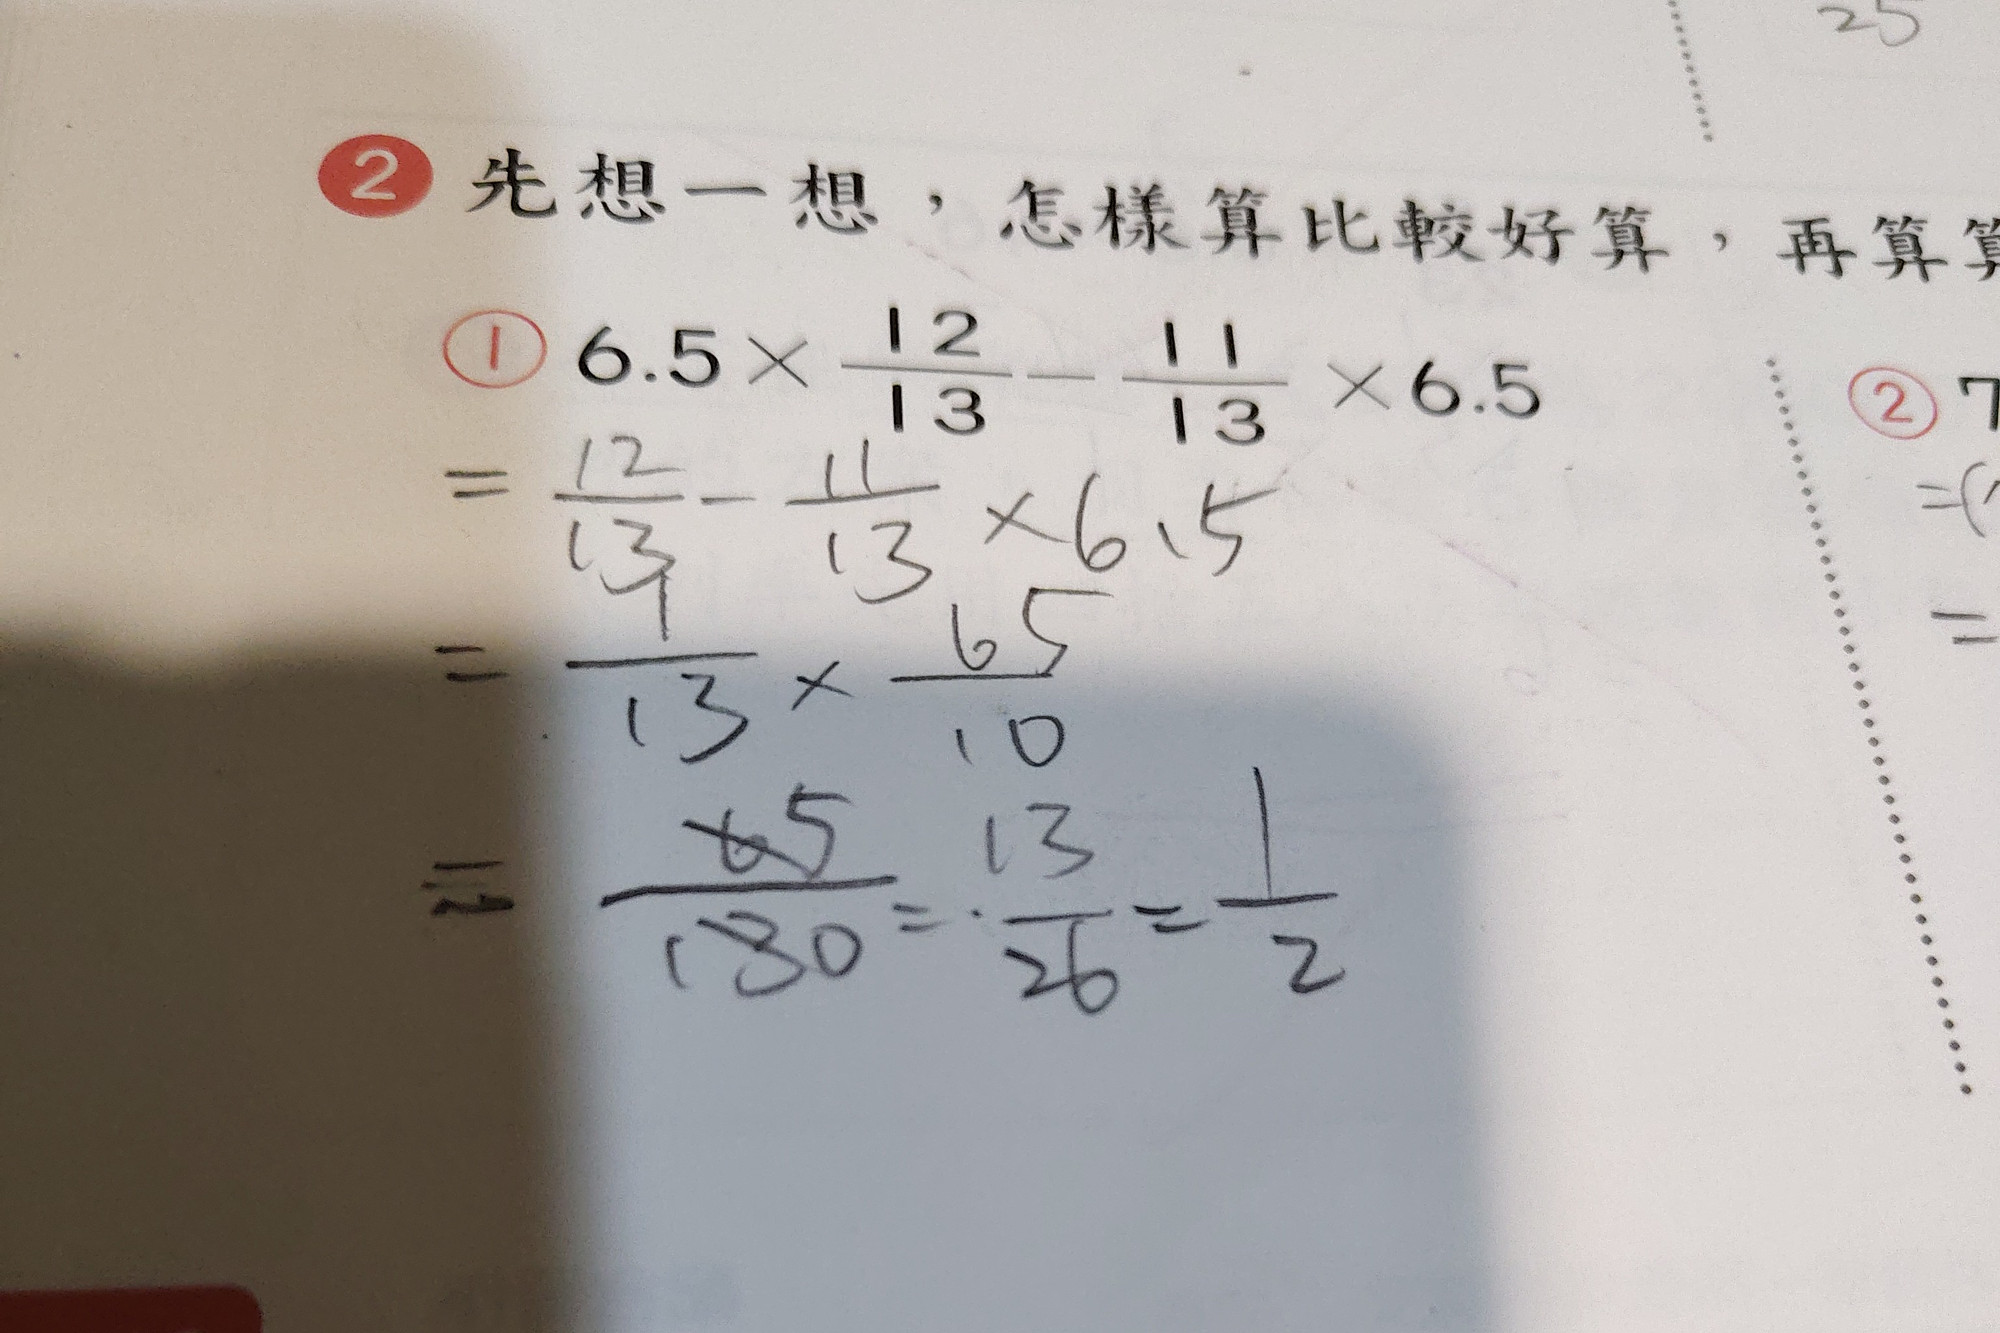 25
2 先想一想，怎樣算比較好算，再算算
① 6.5 × 12/13 − 11/13 × 6.5
② 7
= 12/13 − 11/13 × 6.5
=(
= 1/13 × 65/10
=
= 65/130 = 13/26 = 1/2